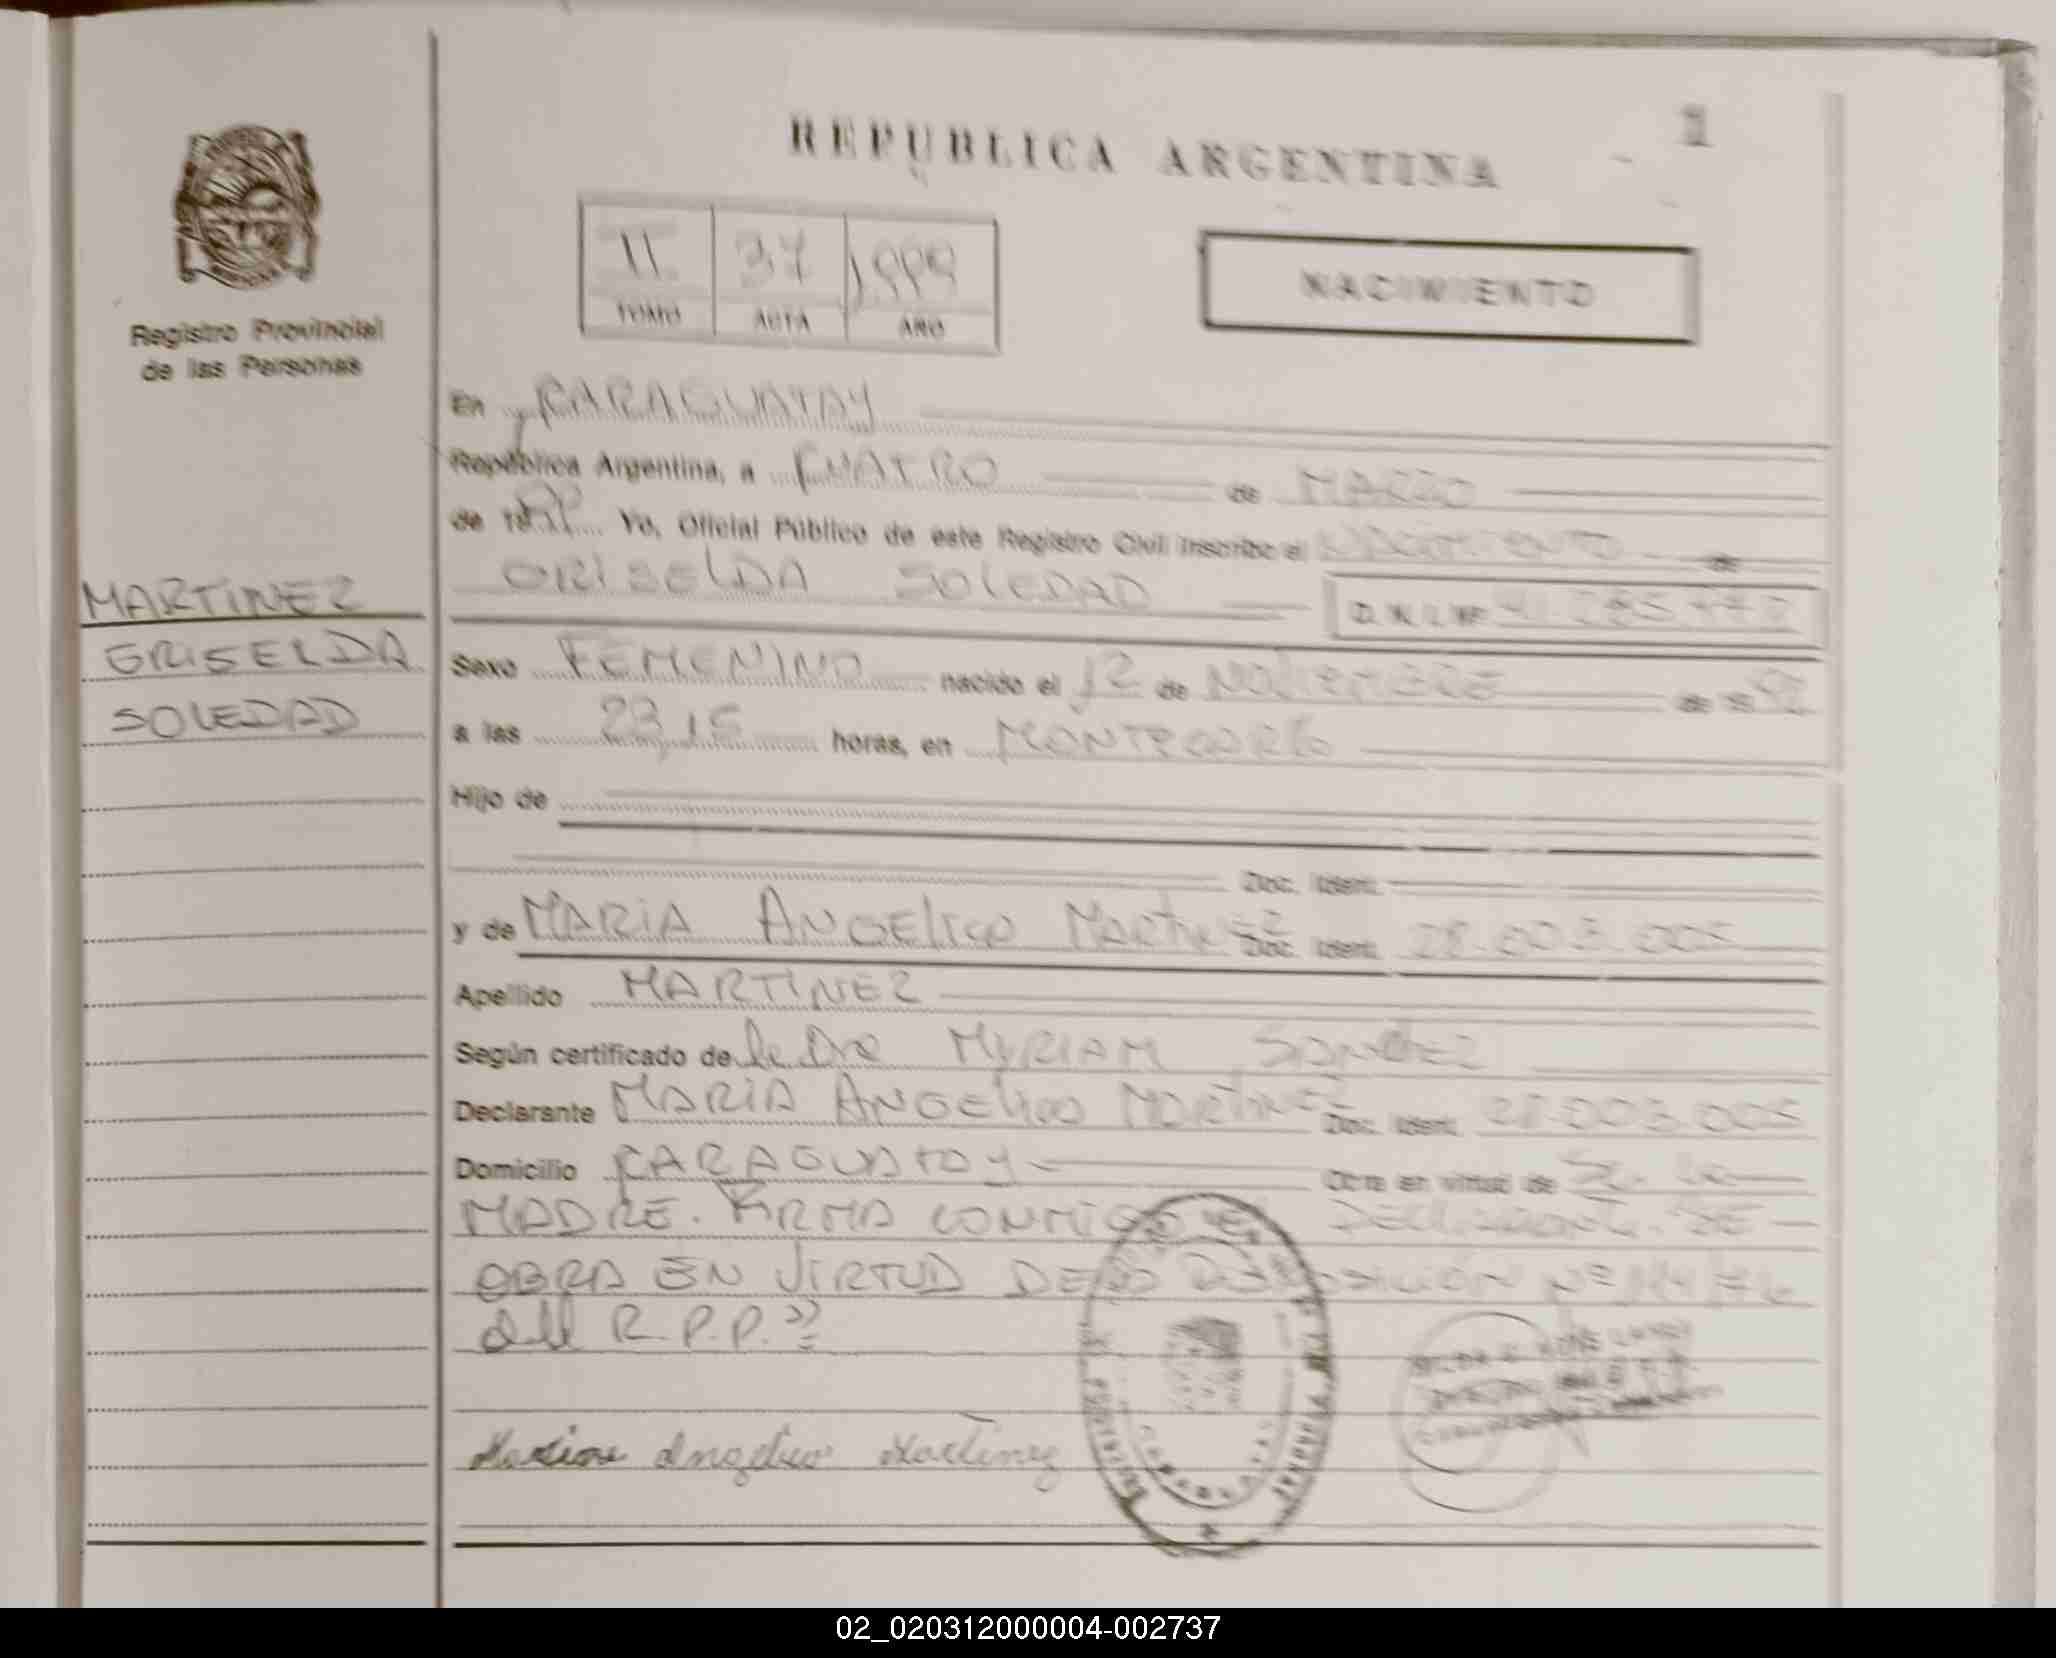 REPUBLICA ARGENTINA
1
II 37 1999
TOMO ACTA AÑO
NACIMIENTO
Registro Provincial
de las Personas
MARTINEZ
GRISELDA
SOLEDAD
En CARAGUATAY
República Argentina, a CUATRO de MARZO
de 1999 Yo, Oficial Público de este Registro Civil inscribo el NACIMIENTO de
GRISELDA SOLEDAD D.N.I. Nº
Sexo FEMENINO nacido el 12 de NOVIEMBRE de 19
a las 23,15 horas, en MONTECARLO
Hijo de
Doc. Ident.
y de MARIA ANGELICA MARTINEZ Doc. Ident. 28.003.005
Apellido MARTINEZ
Según certificado de la Dra MYRIAM SANCHEZ
Declarante MARIA ANGELICA MARTINEZ Doc. Ident. 28.003.005
Domicilio CARAGUATAY Obra en virtud de
MADRE. FIRMA CONMIGO DECLARANTE. "SE
OBRA EN VIRTUD DE LA DISPOSICIÓN Nº
del R.P.P."
Maria Angelica Martinez
02_020312000004-002737